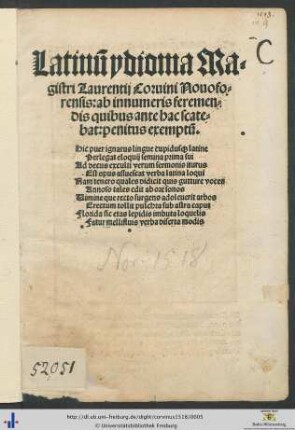 C
Latinū ydioma Ma-
gistri Laurentij Coruini Nouofo-
rensis: ab innumeris feremen-
dis quibus ante hac scate-
bat: penitus exemptū.
Hic puer ignarus lingue cupidusq̃ latine
Perlegat eloquij semina prima sui
Ad decus exculti verum sermonis iturus
Est opus assuescat verba latina loqui
Nam tenero quales didicit quis gutture voces
Annoso tales edit ab ore sonos
Uimine que recto surgens adoleuerit arbos
Erectum tollit pulchra sub astra caput
Florida sic etas lepidis imbuta loquelis
Fatur mellifluis verba diserta modis
Nov. 1518
52051
http://dl.ub.uni-freiburg.de/diglit/corvinus1518/0005
© Universitätsbibliothek Freiburg